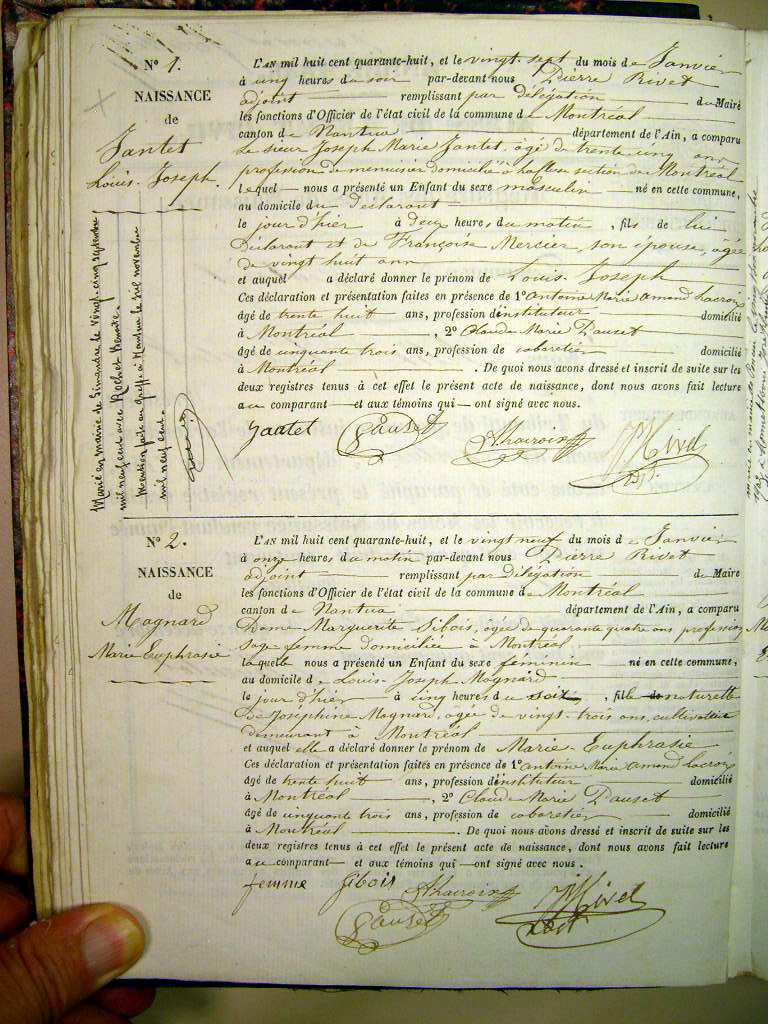 N° 1.
NAISSANCE
de
Jantet
Louis-Joseph.
L'AN mil huit cent quarante-huit, et le vingt-sept du mois de Janvier
à cinq heures du soir par-devant nous Pierre Rivet
adjoint remplissant par délégation du Maire
les fonctions d'Officier de l'état civil de la commune de Montréal
canton de Nantua département de l'Ain, a comparu
Le sieur Joseph Marie Jantet, âgé de trente cinq ans
profession de menuisier domicilié à section de Montréal
lequel nous a présenté un Enfant du sexe masculin né en cette commune,
au domicile du déclarant
le jour d'hier à deux heures du matin, fils de lui
déclarant et de Françoise Mercier, son épouse, âgée
de vingt huit ans
et auquel a déclaré donner le prénom de Louis-Joseph
Ces déclaration et présentation faites en présence de 1° Antoine Marie Amand Lacroix
âgé de trente huit ans, profession d'instituteur domicilié
à Montréal, 2° Claude Marie Dauset
âgé de cinquante trois ans, profession de cabaretier domicilié
à Montréal. De quoi nous avons dressé et inscrit de suite sur les
deux registres tenus à cet effet le présent acte de naissance, dont nous avons fait lecture
au comparant et aux témoins qui ont signé avec nous.
Jantet
Marié en mairie de Simandre le vingt-cinq septembre,
mil neuf cent avec Rochet Benoite.
Mention faite au greffe à Nantua le six novembre
mil neuf cent.
N° 2.
NAISSANCE
de
Magnard
Marie Euphrasie
L'AN mil huit cent quarante-huit, et le vingt neuf du mois de Janvier
à onze heures du matin par-devant nous Pierre Rivet
adjoint remplissant par délégation du Maire
les fonctions d'Officier de l'état civil de la commune de Montréal
canton de Nantua département de l'Ain, a comparu
Dame Marguerite Sibois, âgée de quarante quatre ans profession
sage-femme domiciliée à Montréal
laquelle nous a présenté un Enfant du sexe féminin né en cette commune,
au domicile de Louis-Joseph Magnard
le jour d'hier à cinq heures du soir, fille de naturelle
de Joséphine Magnard, âgée de vingt-trois ans, cultivateur
demeurant à Montréal
et auquel elle a déclaré donner le prénom de Marie-Euphrasie
Ces déclaration et présentation faites en présence de 1° Antoine Marie Amand Lacroix
âgé de trente huit ans, profession d'instituteur domicilié
à Montréal, 2° Claude Marie Dauset
âgé de cinquante trois ans, profession de cabaretier domicilié
à Montréal. De quoi nous avons dressé et inscrit de suite sur les
deux registres tenus à cet effet le présent acte de naissance, dont nous avons fait lecture
a u comparant et aux témoins qui ont signé avec nous.
femme Sibois